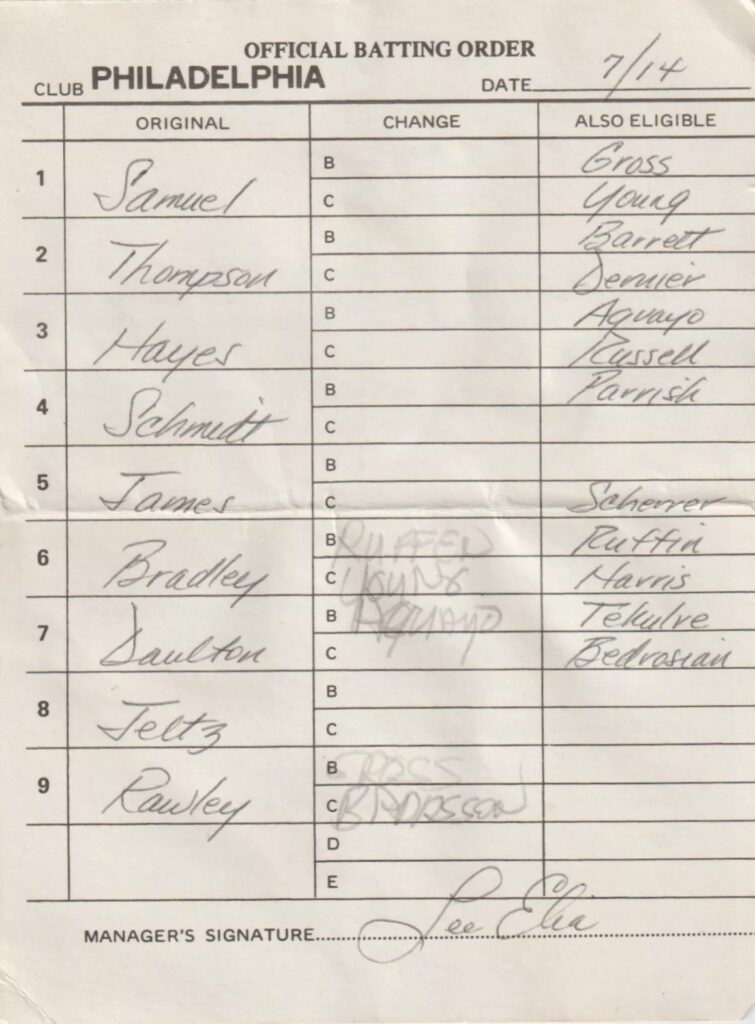 OFFICIAL BATTING ORDER
CLUB PHILADELPHIA DATE 7/14
ORIGINAL CHANGE ALSO ELIGIBLE
1 Samuel B Gross
C Young
2 Thompson B Barrett
C Dernier
3 Hayes B Aguayo
C Russell
4 Schmidt B Parrish
C
5 James B
C Scherrer
6 Bradley B RUFFED Ruffin
C YOUNG Harris
7 Daulton B AGUAYO Tekulve
C Bedrosian
8 Jeltz B
C
9 Rawley B GROSS
C
D
E
MANAGER'S SIGNATURE Lee Elia